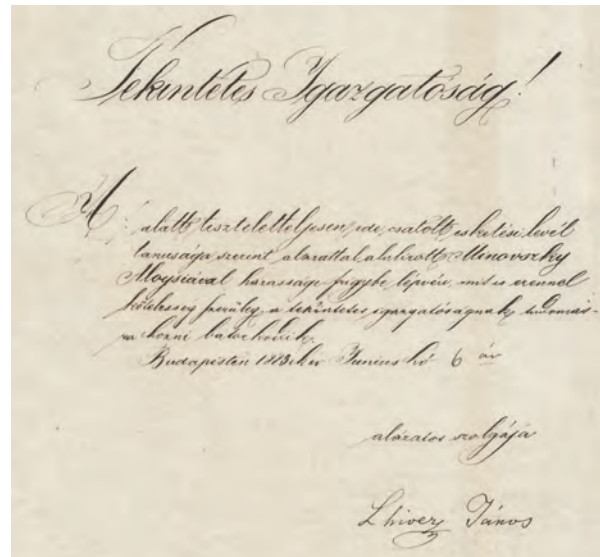 Tekintetes Igazgatóság!
alatt tiszteletteljesen ide csatolt esketési levél
tanusága szerint alázattal alulirott Minovszky
Aloysiával házassági frigybe lépvén, mit is ezennel
kötelesség szerüleg a tekintetes igazgatóságnak tudomás-
ra hozni
Budapesten Junius hó 6 án
alázatos szolgája
Lhivey János